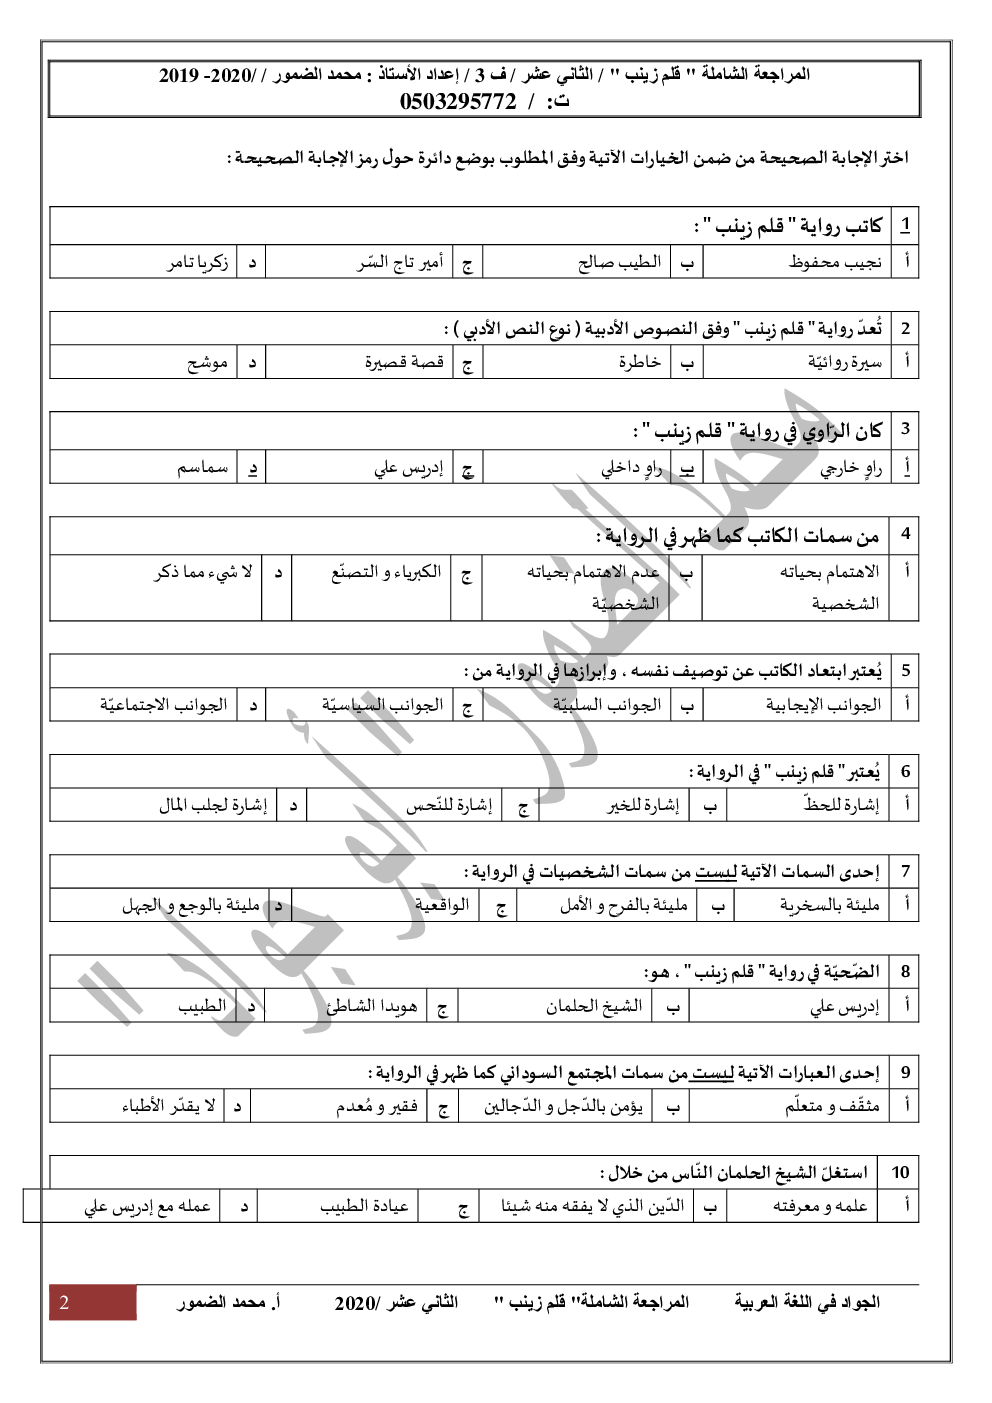 المراجعة الشاملة " قلم زينب " / الثاني عشر / ف 3 / إعداد الأستاذ : محمد الضمور / /2020- 2019
ت: / 0503295772
اختر الإجابة الصحيحة من ضمن الخيارات الآتية وفق المطلوب بوضع دائرة حول رمز الإجابة الصحيحة :
1 كاتب رواية " قلم زينب " :
أ نجيب محفوظ ب الطيب صالح ج أمير تاج السّر د زكريا تامر
2 تُعدّ رواية " قلم زينب " وفق النصوص الأدبية ( نوع النص الأدبي ) :
أ سيرة روائيّة ب خاطرة ج قصة قصيرة د موشح
3 كان الرّاوي في رواية " قلم زينب " :
أ راوٍ خارجي ب راوٍ داخلي ج إدريس علي د سماسم
4 من سمات الكاتب كما ظهر في الرواية :
أ الاهتمام بحياته ب عدم الاهتمام بحياته ج الكبرياء و التصنّع د لا شيء مما ذكر
الشخصية الشخصيّة
5 يُعتبر ابتعاد الكاتب عن توصيف نفسه ، وإبرازها في الرواية من :
أ الجوانب الإيجابية ب الجوانب السلبيّة ج الجوانب السياسيّة د الجوانب الاجتماعيّة
6 يُعتبر " قلم زينب " في الرواية :
أ إشارة للحظّ ب إشارة للخير ج إشارة للنّحس د إشارة لجلب المال
7 إحدى السمات الآتية ليست من سمات الشخصيات في الرواية :
أ مليئة بالسخرية ب مليئة بالفرح و الأمل ج الواقعية د مليئة بالوجع و الجهل
8 الضّحيّة في رواية " قلم زينب " ، هو:
أ إدريس علي ب الشيخ الحلمان ج هويدا الشاطئ د الطبيب
9 إحدى العبارات الآتية ليست من سمات المجتمع السوداني كما ظهر في الرواية :
أ مثقّف و متعلّم ب يؤمن بالدّجل و الدّجالين ج فقير و مُعدم د لا يقدّر الأطباء
10 استغلّ الشيخ الحلمان النّاس من خلال :
أ علمه و معرفته ب الدّين الذي لا يفقه منه شيئا ج عيادة الطبيب د عمله مع إدريس علي
محمد الضمور " أبو جواد "
الجواد في اللغة العربية المراجعة الشاملة" قلم زينب " الثاني عشر /2020 أ. محمد الضمور 2